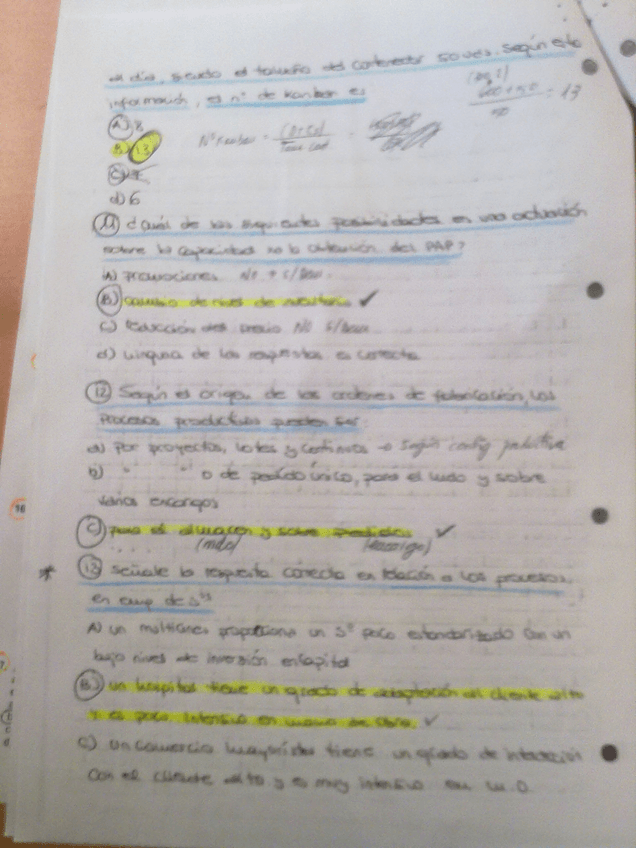 al día, siendo el tamaño del contenedor 50 uds. Según esta
información, el nº de kanban es
A) 8
B) 13
C)
d) 6
Nº Kanban =
= 13
50
11 ¿Cuál de las siguientes posibilidades en una actuación
sobre la capacidad en la obtención del PAP?
A) Promociones. No →
B) Cambio de nivel de ✓
C) Reducción del precio NO
d) Ninguna de las respuestas es correcta
12 Según el origen de las órdenes de fabricación, los
procesos productivos pueden ser:
a) Por proyectos, lotes y continuos → Según config productiva
b) " " o de pedido único, para el mdo y sobre
varios encargos
C) para el almacén y sobre pedidos ✓
(mdo) (encargo)
* 13 Señale la respuesta correcta en relación a los procesos
en emp de Sºs
A) Un multicines proporciona un Sº poco estandarizado con un
bajo nivel de inversión en capital
B) Un hospital tiene un grado de adaptación al cliente alto
y es poco intensivo en mano de obra. ✓
C) Un comercio mayorista tiene un grado de interacción
con el cliente alto y es muy intensivo en M.O.
16